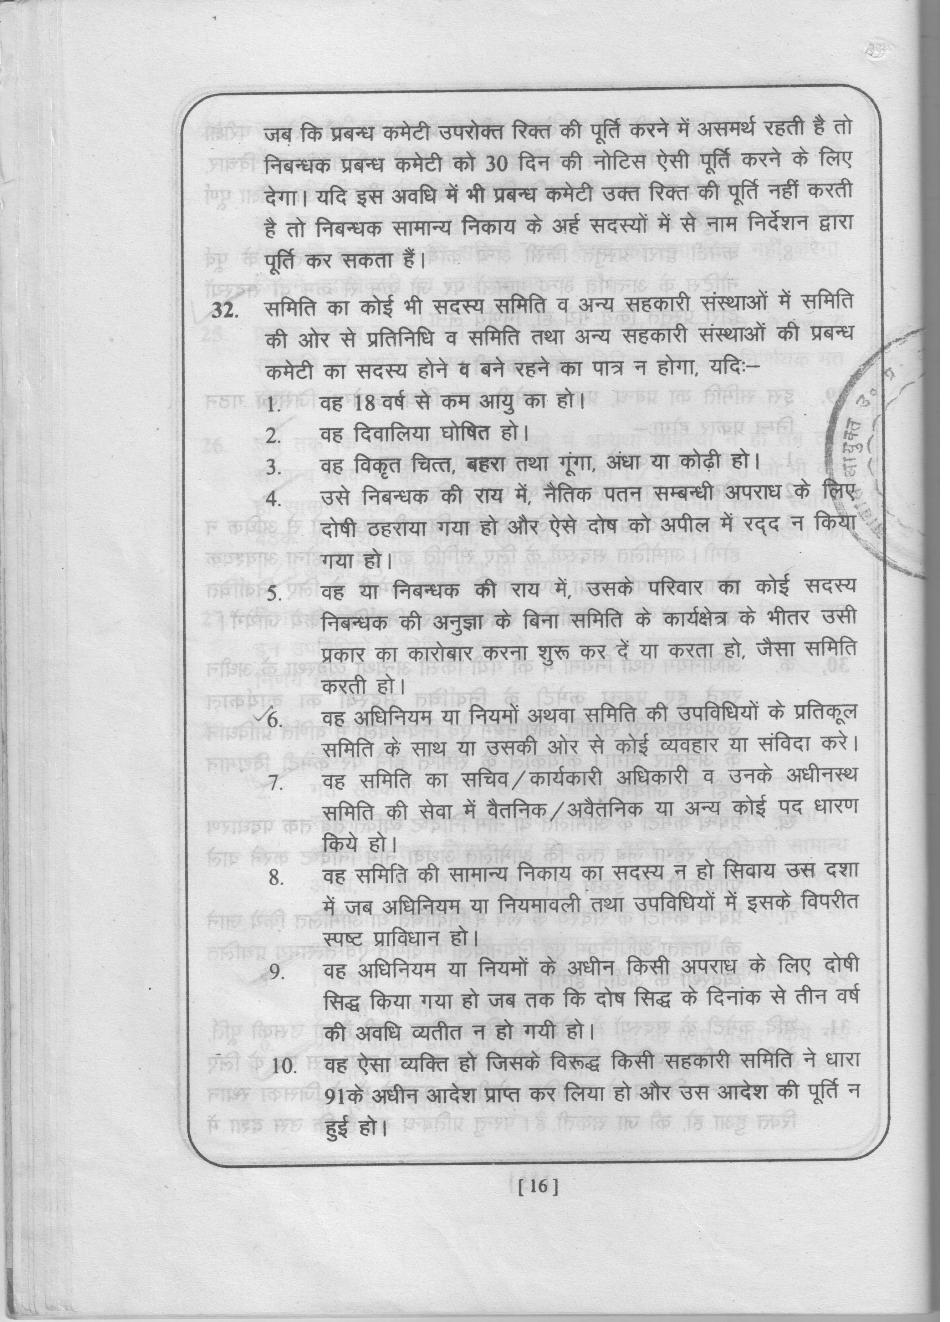 जब कि प्रबन्ध कमेटी उपरोक्त रिक्त की पूर्ति करने में असमर्थ रहती है तो
निबन्धक प्रबन्ध कमेटी को 30 दिन की नोटिस ऐसी पूर्ति करने के लिए
देगा। यदि इस अवधि में भी प्रबन्ध कमेटी उक्त रिक्त की पूर्ति नहीं करती
है तो निबन्धक सामान्य निकाय के अर्ह सदस्यों में से नाम निर्देशन द्वारा
पूर्ति कर सकता हैं।
32. समिति का कोई भी सदस्य समिति व अन्य सहकारी संस्थाओं में समिति
की ओर से प्रतिनिधि व समिति तथा अन्य सहकारी संस्थाओं की प्रबन्ध
कमेटी का सदस्य होने व बने रहने का पात्र न होगा, यदिः–
1. वह 18 वर्ष से कम आयु का हो।
2. वह दिवालिया घोषित हो।
3. वह विकृत चित्त, बहरा तथा गूंगा, अंधा या कोढ़ी हो।
4. उसे निबन्धक की राय में, नैतिक पतन सम्बन्धी अपराध के लिए
दोषी ठहराया गया हो और ऐसे दोष को अपील में रद्द न किया
गया हो।
5. वह या निबन्धक की राय में, उसके परिवार का कोई सदस्य
निबन्धक की अनुज्ञा के बिना समिति के कार्यक्षेत्र के भीतर उसी
प्रकार का कारोबार करना शुरू कर दें या करता हो, जैसा समिति
करती हो।
6. वह अधिनियम या नियमों अथवा समिति की उपविधियों के प्रतिकूल
समिति के साथ या उसकी ओर से कोई व्यवहार या संविदा करे।
7. वह समिति का सचिव/कार्यकारी अधिकारी व उनके अधीनस्थ
समिति की सेवा में वैतनिक/अवैतनिक या अन्य कोई पद धारण
किये हो।
8. वह समिति की सामान्य निकाय का सदस्य न हो सिवाय उस दशा
में जब अधिनियम या नियमावली तथा उपविधियों में इसके विपरीत
स्पष्ट प्राविधान हो।
9. वह अधिनियम या नियमों के अधीन किसी अपराध के लिए दोषी
सिद्ध किया गया हो जब तक कि दोष सिद्ध के दिनांक से तीन वर्ष
की अवधि व्यतीत न हो गयी हो।
10. वह ऐसा व्यक्ति हो जिसके विरूद्ध किसी सहकारी समिति ने धारा
91के अधीन आदेश प्राप्त कर लिया हो और उस आदेश की पूर्ति न
हुई हो।
[ 16 ]